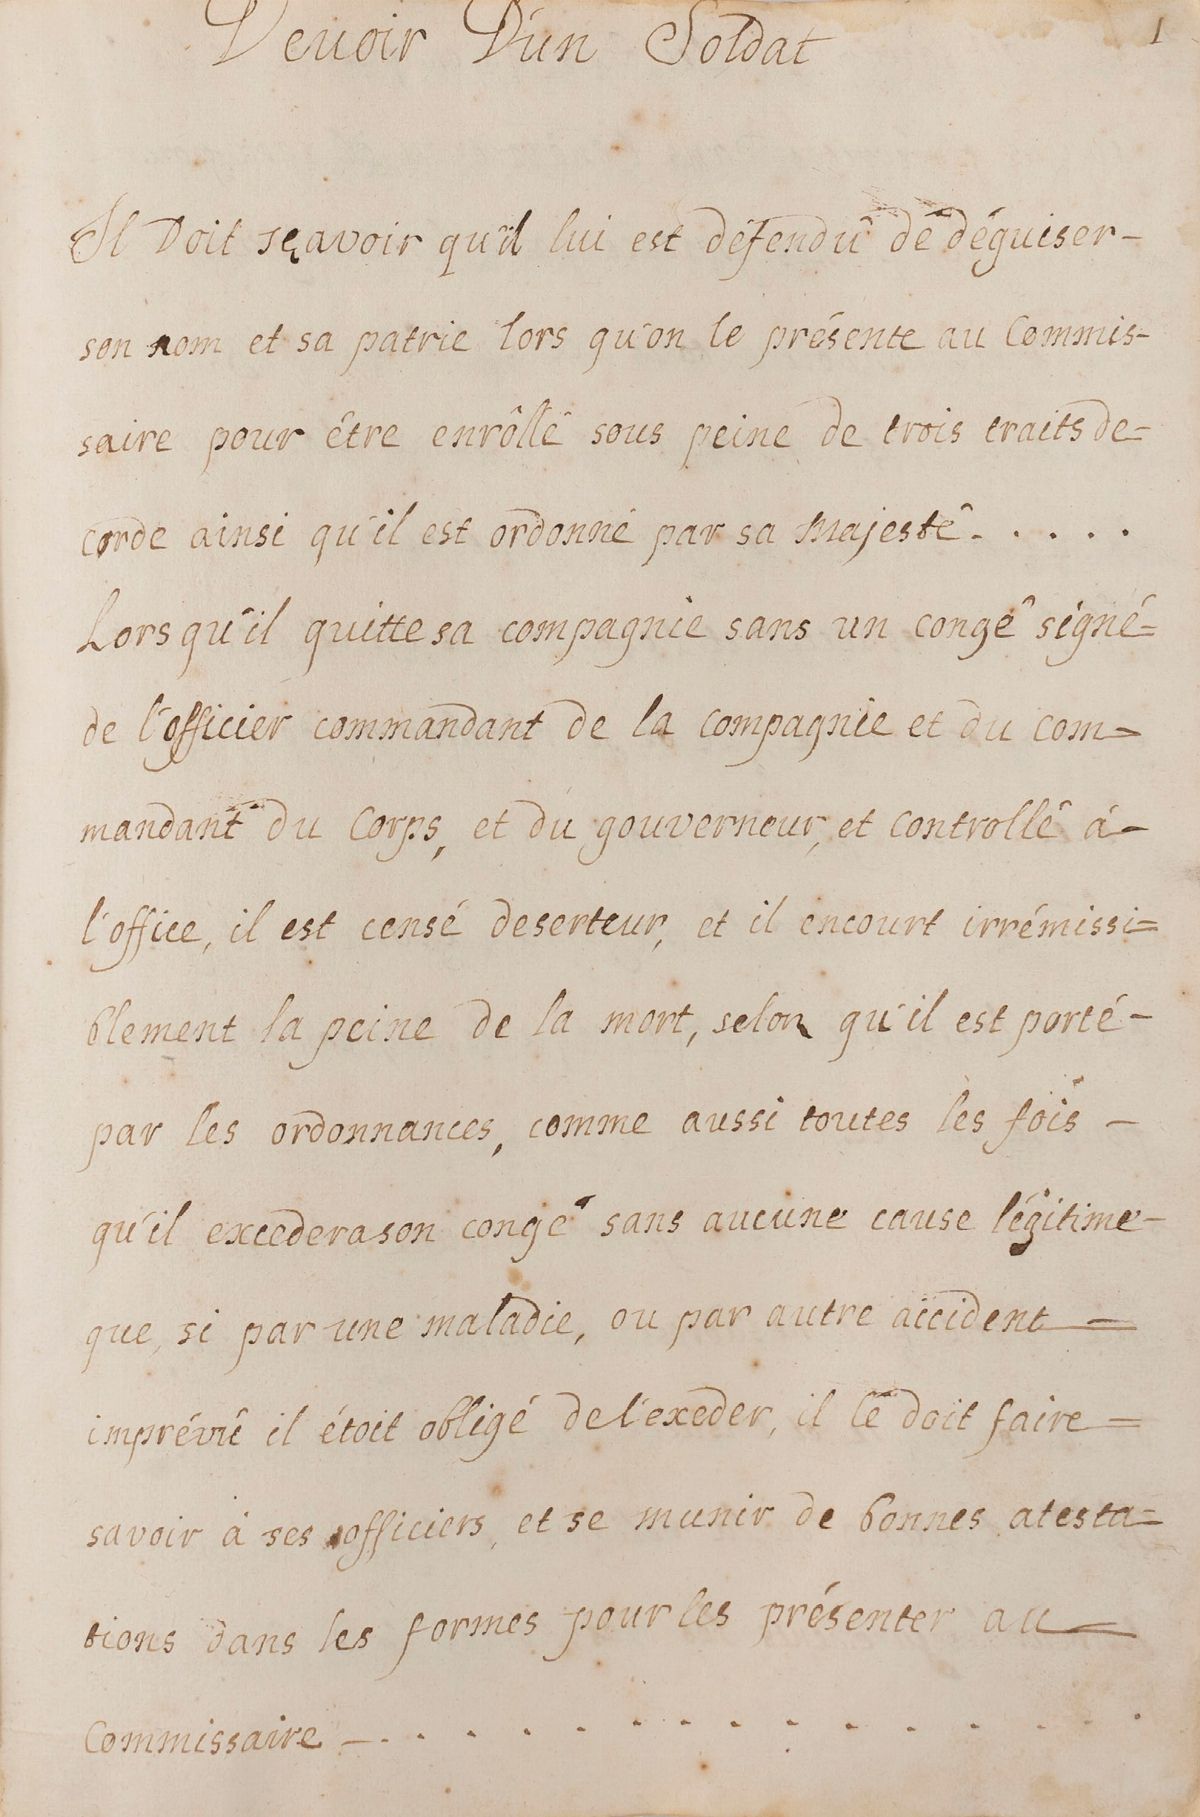 Devoir D'un Soldat
1
Il Doit sçavoir qu'il lui est défendû dé déguiser-
son nom et sa patrie lors qu'on le présente au Commis-
saire pour être enrôllê sous peine de trois traits de=
corde ainsi qu'il est ordonné par sa Majestê. . . . .
Lors qu'il quitte sa compagnie sans un congê signé=
de l'officier commandant de la compagnie et du com-
mandant du Corps, et du gouverneur, et controllê á-
l'office, il est censé deserteur, et il encourt irrémissi=
blement la peine de la mort, selon qu'il est porté-
par les ordonnances, comme aussi toutes les fois -
qu'il excedera son congé sans aucune cause légitime-
que, si par une maladie, ou par autre accident =
imprévû il étoit obligé de l'exeder, il le doit faire=
savoir à ses officiers, et se munir de bonnes atesta=
tions dans les formes pour les présenter au -
Commissaire - . . . . . . . . . . . . . .